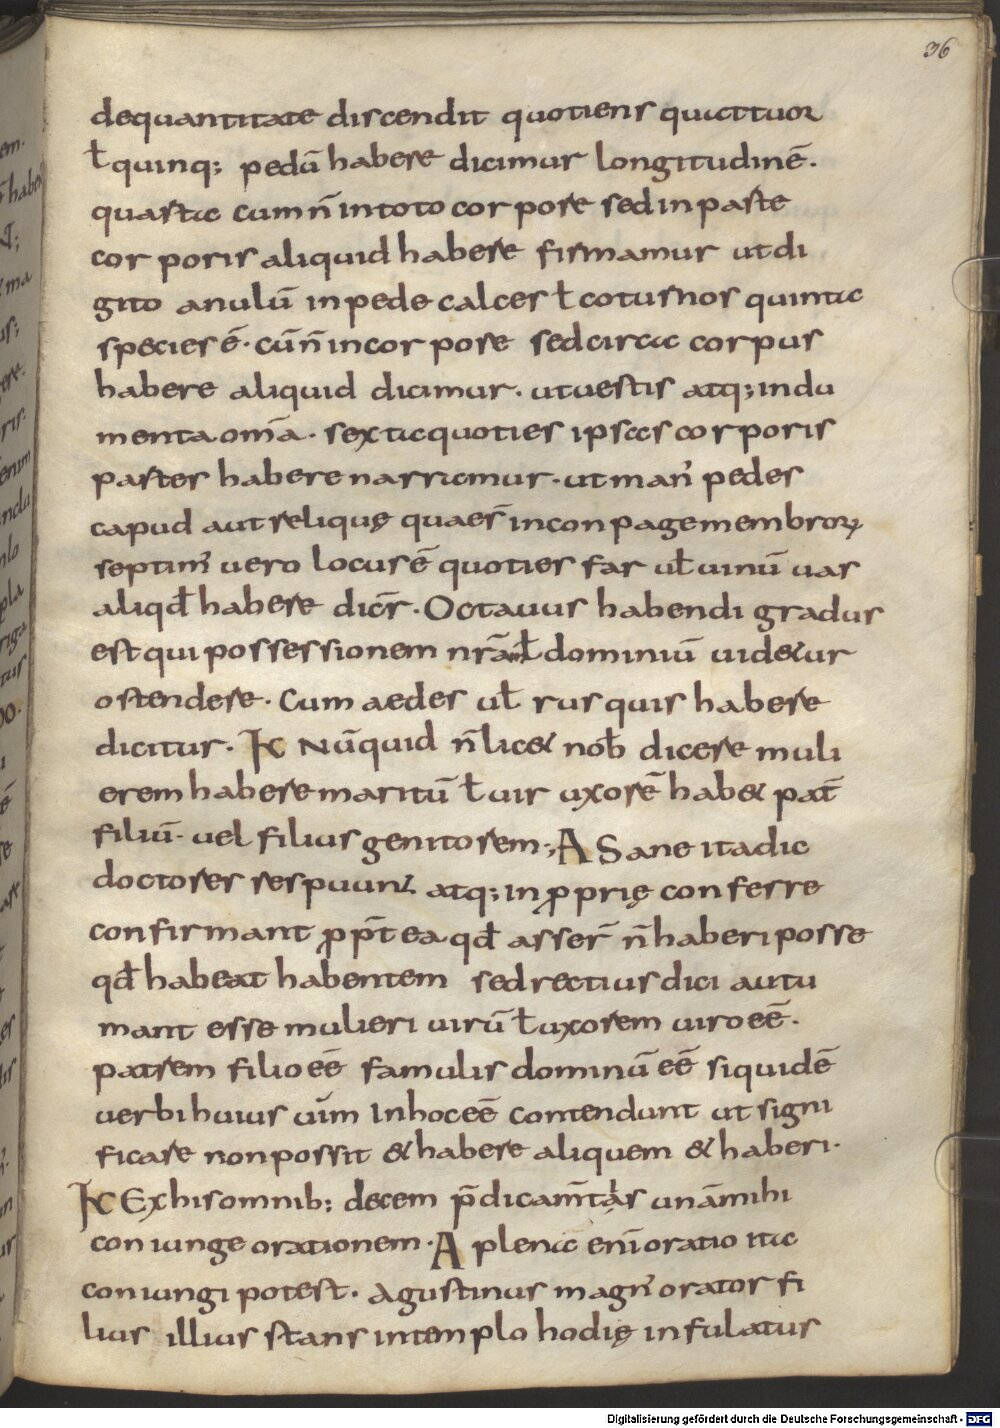 36
dequantitate discendit quotiens quattuor
ł quinq; pedū habere dicimur longitudinē.
quarta cum n̄ in toto corpore sed in parte
corporis aliquid habere firmamur ut di
gito anulū in pede calces ł coturnos quinta
species ē. cū n̄ in corpore sed circa corpus
habere aliquid dicimur. ut uestis atq; indu
menta om̄a. sexta quoties ipsas corporis
partes habere narramur. ut man' pedes
capud aut reliquę quae s̄ in conpage membroꝝ
septim' uero locus ē quoties far uł uinū uas
aliqđ habere dicr̄. Octauus habendi gradus
est qui possessionem nrā ł dominiū uidetur
ostendere. Cum aedes uł rus quis habere
dicitur. K Nūquid n̄ licet nob̄ dicere muli
erem habere maritū ł uir uxorē habet pat̄
filiū. uel filius genitorem; A Sane ita dic
doctores respuunt atq; inꝓprię conferre
confirmant ꝓpt̄ea qđ asser̄ n̄ haberi posse
qđ habeat habentem sed rectius dici autu
mant esse mulieri uirū ł uxorem uiro eē.
patrem filio eē famulis dominū eē siquidē
uerbi huius uim in hoc eē contendunt ut signi
ficare non possit & habere aliquem & haberi.
K Ex his omnib; decem p̄dicam̄tis unā mihi
coniunge orationem. A plena enī oratio ita
coniungi potest. Agustinus magn' orator fi
lius illius stans in templo hodię infulatus
Digitalisierung gefördert durch die Deutsche Forschungsgemeinschaft - DFG